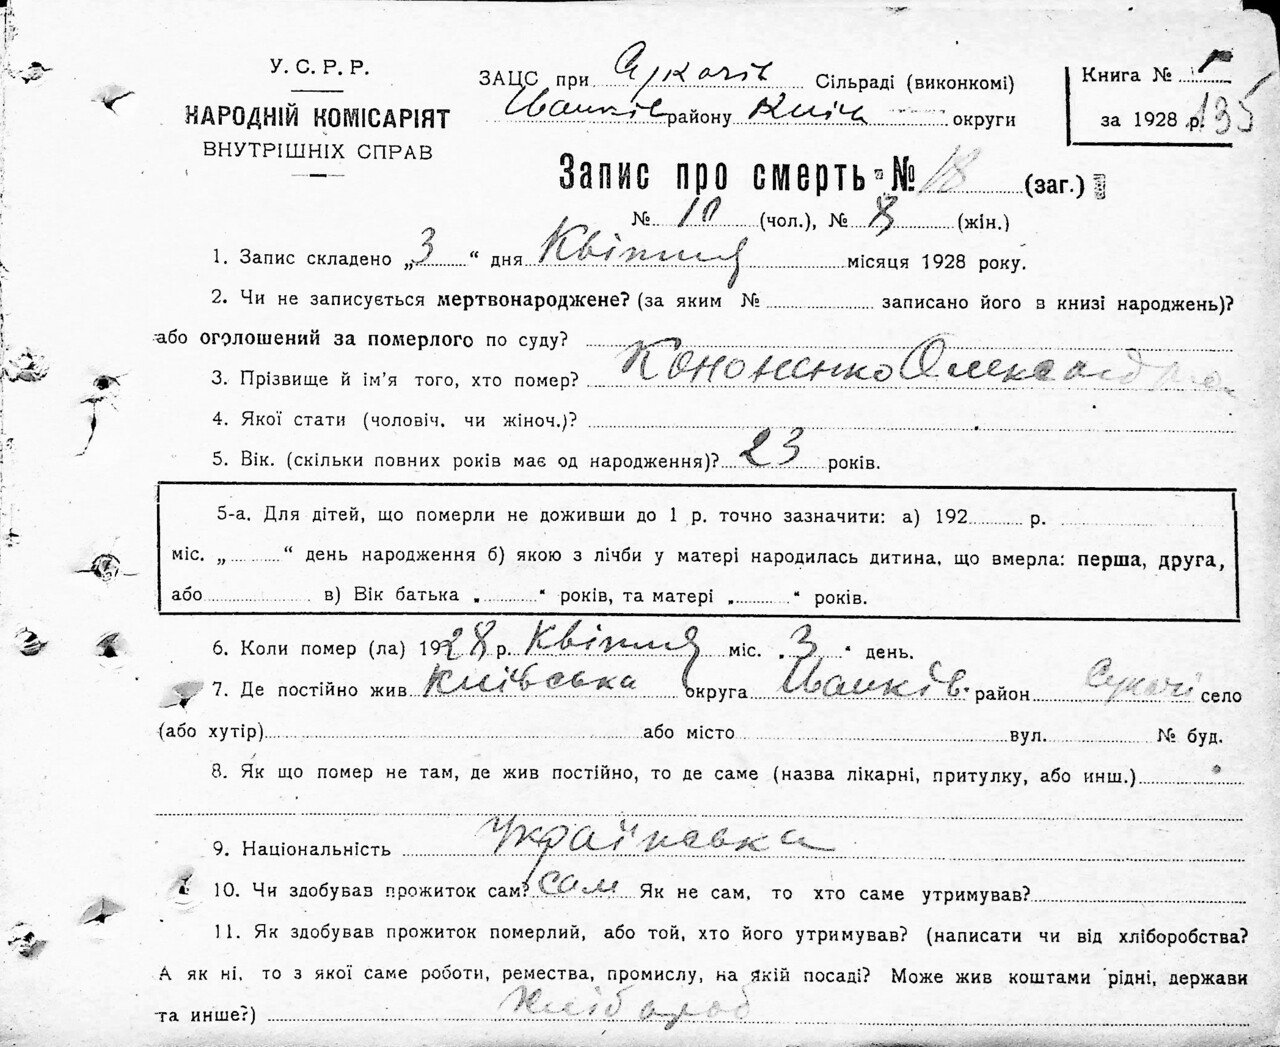 У. С. Р. Р.
НАРОДНІЙ КОМІСАРІЯТ
ВНУТРІШНІХ СПРАВ
ЗАЦС при Сукачів Сільраді (виконкомі)
Іванків району Київ округи
Книга №
за 1928 р. 135
Запис про смерть № 18 (заг.)
№ 10 (чол.), № 8 (жін.)
1. Запис складено „3“ дня Квітня місяця 1928 року.
2. Чи не записується мертвонароджене? (за яким № записано його в книзі народжень)?
або оголошений за померлого по суду?
3. Прізвище й ім'я того, хто помер? Кононенко Олександра
4. Якої стати (чоловіч. чи жіноч.)?
5. Вік. (скільки повних років має од народження)? 23 років.
5-а. Для дітей, що померли не доживши до 1 р. точно зазначити: а) 192 р.
міс. „ “ день народження б) якою з лічби у матері народилась дитина, що вмерла: перша, друга,
або в) Вік батька „ “ років, та матері „ “ років.
6. Коли помер (ла) 1928 р. Квітня міс. „3“ день.
7. Де постійно жив Київська округа Іванків. район Сукачі село
(або хутір) або місто вул. № буд.
8. Як що помер не там, де жив постійно, то де саме (назва лікарні, притулку, або инш.)
9. Національність Українська
10. Чи здобував прожиток сам? сам Як не сам, то хто саме утримував?
11. Як здобував прожиток померлий, або той, хто його утримував? (написати чи від хліборобства?
А як ні, то з якої саме роботи, ремества, промислу, на якій посаді? Може жив коштами рідні, держави
та инше?) хлібороб